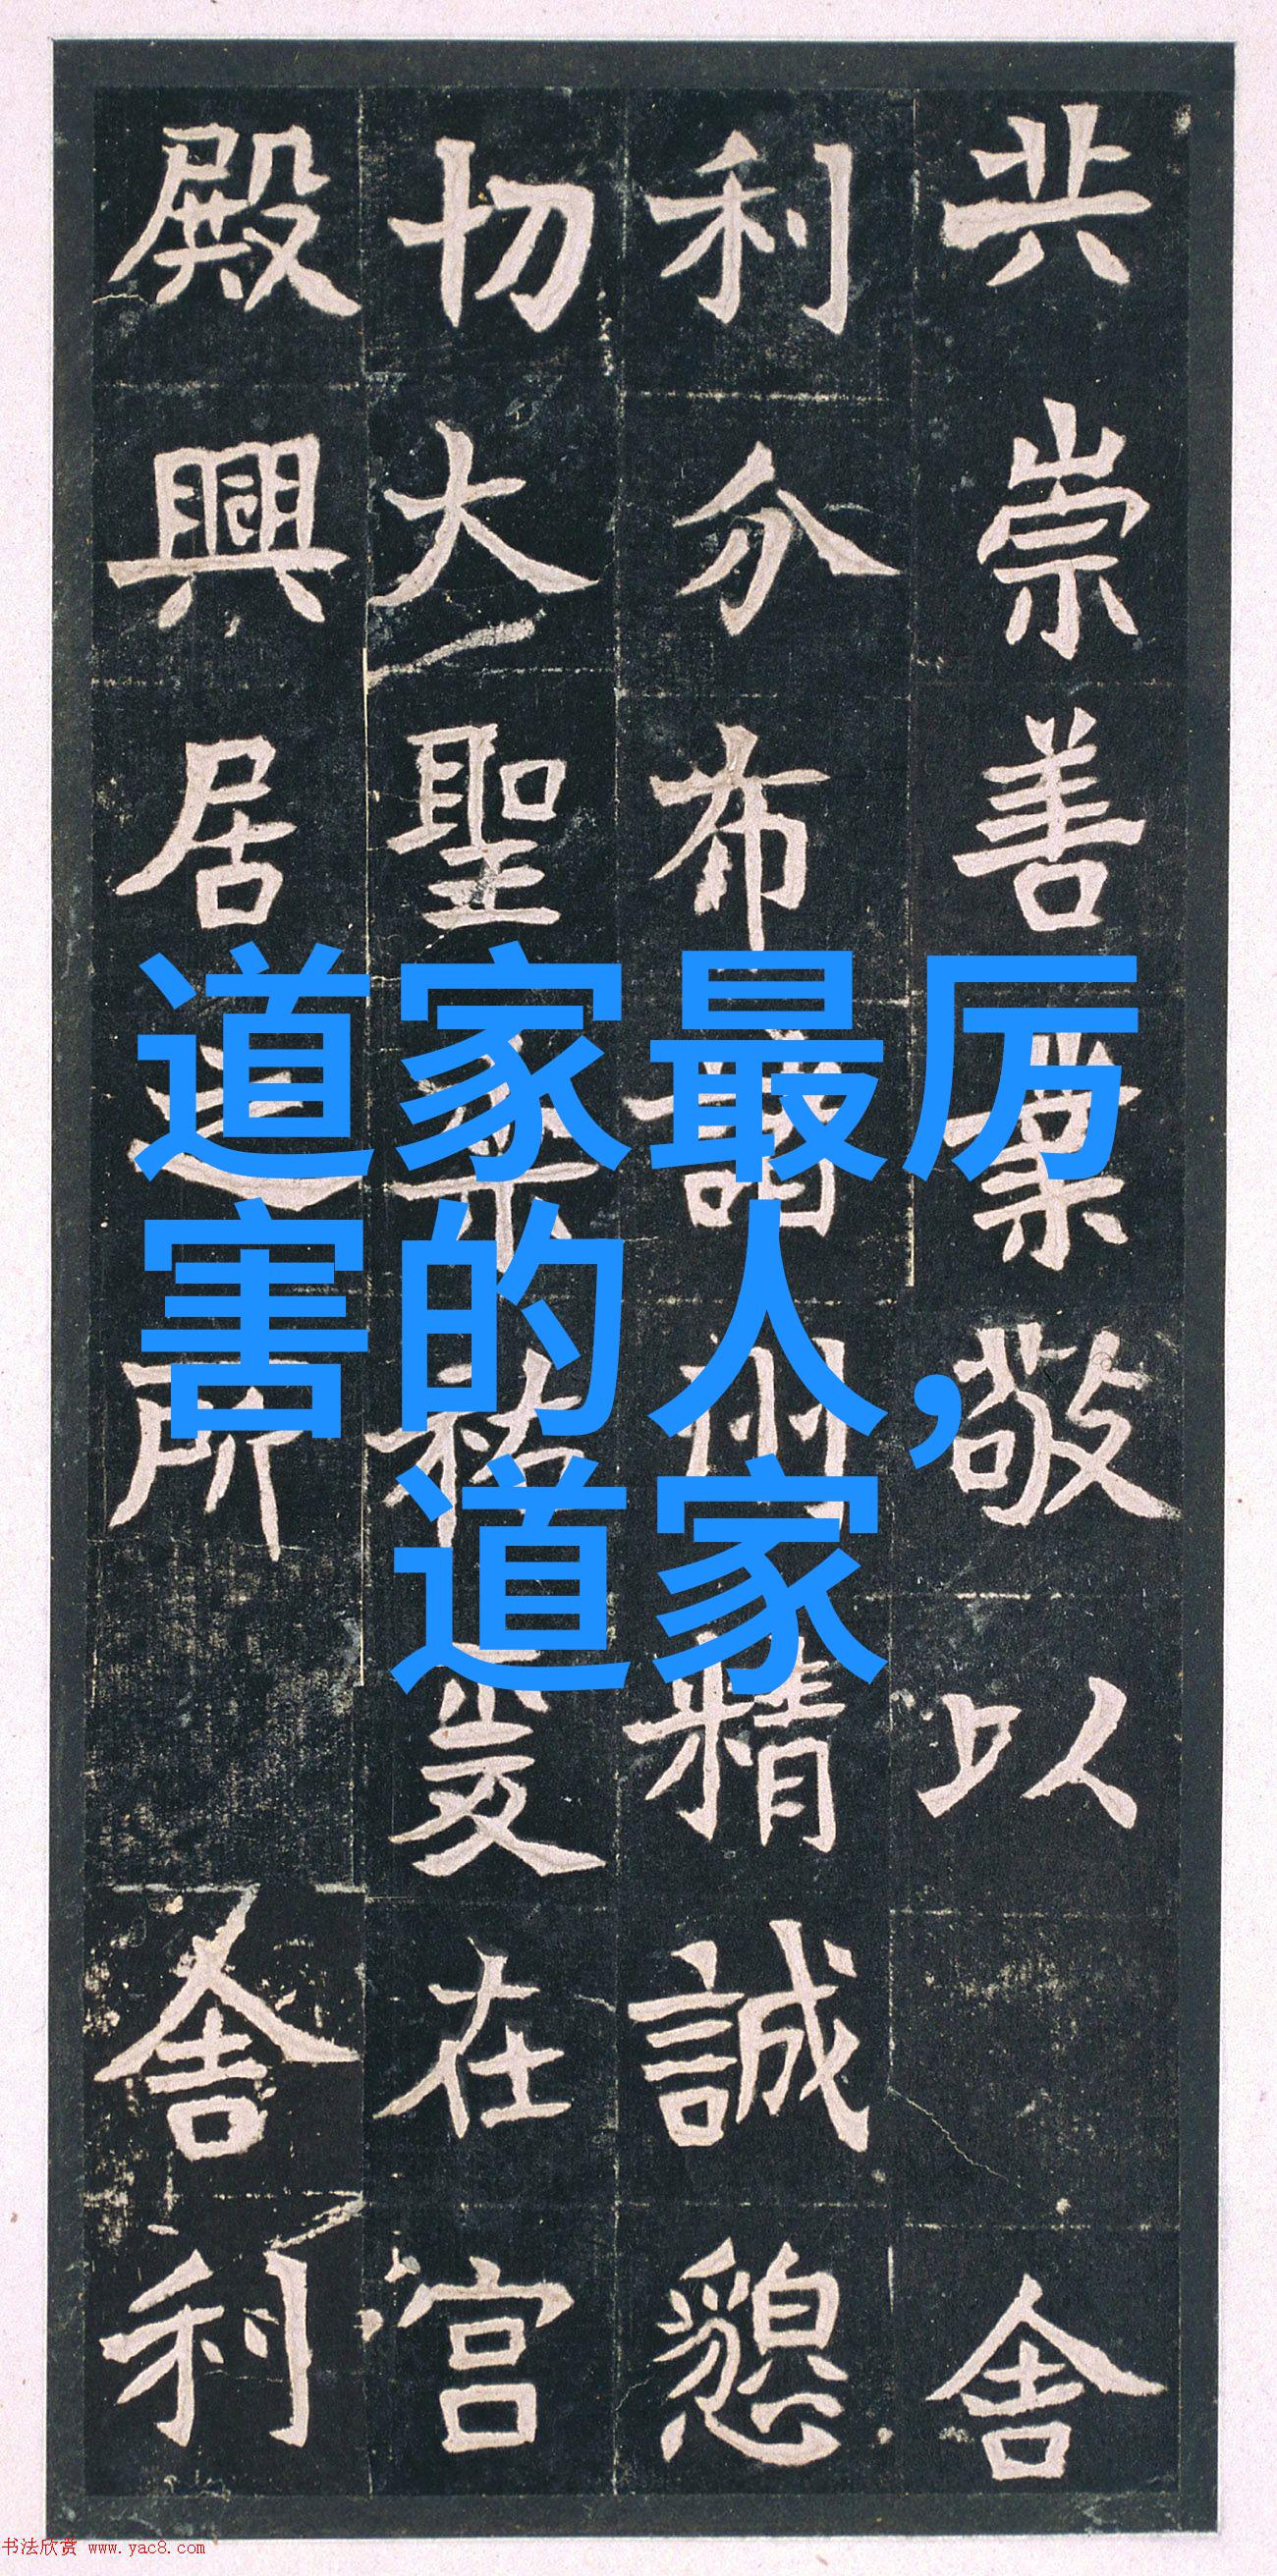 共崇善業敬以舍
利分布諸州精誠懇
切大聖垂祐爰在宫
殿興居之所舍利
道家最厉
害的人,
道家
书法欣赏 www.yac8.com